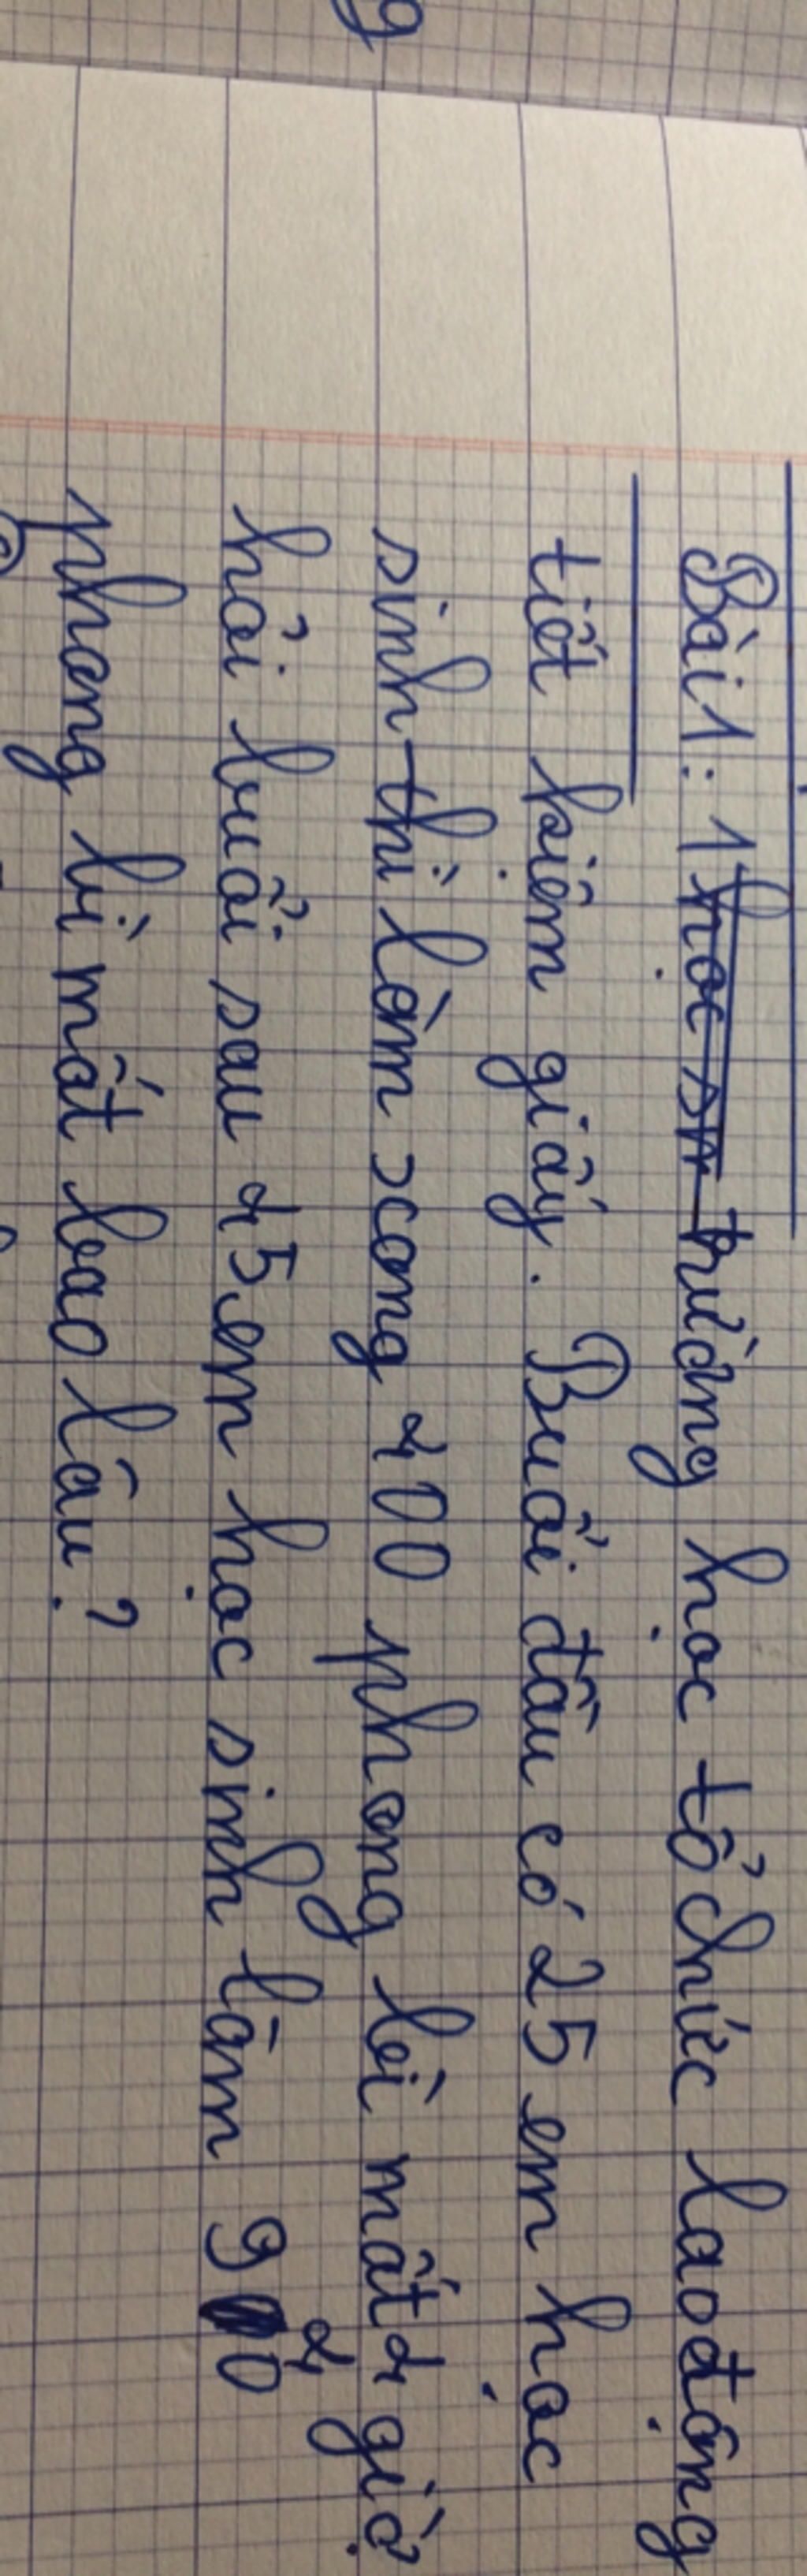 Bài 1: 1 trường học tổ chức lao động
tiết kiệm giấy. Buổi đầu có 25 em học
sinh thì làm xong 400 phong bì mất 4 giờ
hỏi buổi sau 45 em học sinh làm 940
phong bì mất bao lâu?